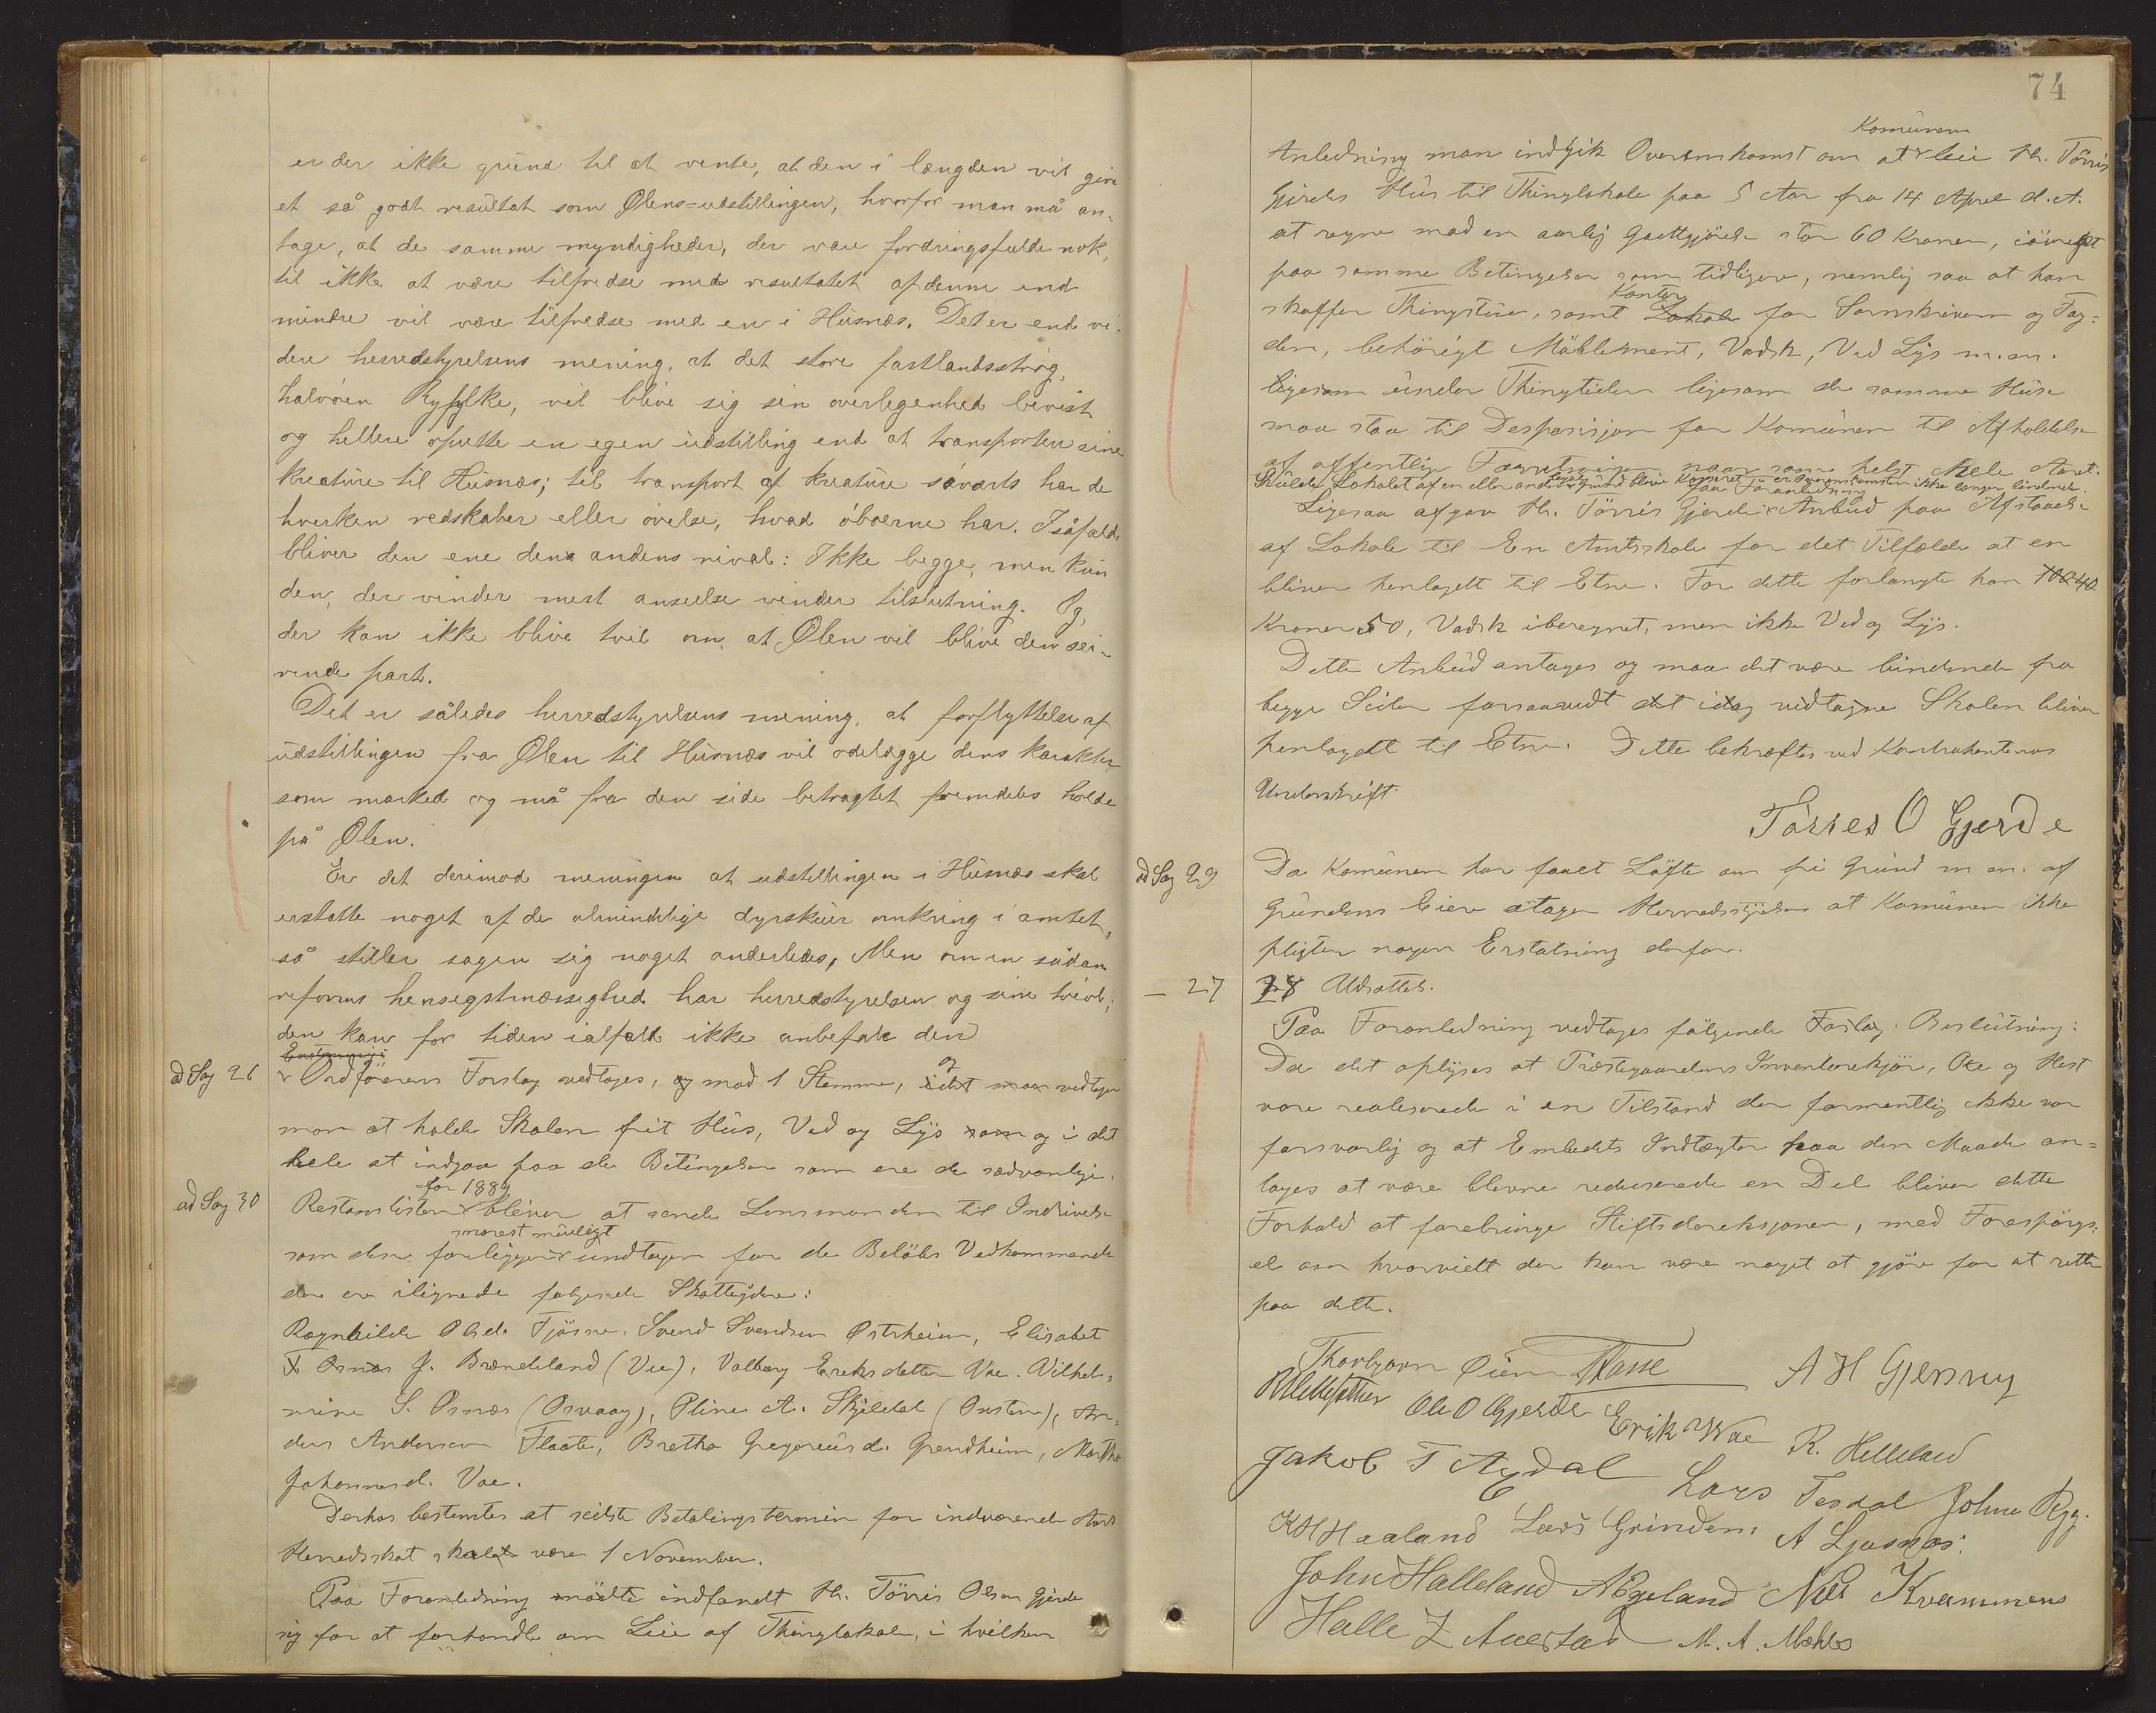 er der ikke grund til at vente, at den i længden vil give
et så godt resultat som Ølens-udstillingen, hvorfor man må an-
tage, at de samme myndigheder, der vare fordringsfulde nok,
til ikke at være tilfredse med resultatet af denne end
mindre vil være tilfredse med en i Husnæs. Det er end vi-
dere herredstyrelsens mening, at det store fastlandsstrøg,
halvöen Ryfylke, vil blive sig sin overlegenhed bevist
og hellere oprette en egen udstilling end at transportere sine
kreature til Husnæs; til transport af kreature söværts har de
hverken redskaber eller övelse, hvad öboerne har. Isåfald
bliver den ene den andens rival: Ikke begge, men kun
den, der vinder mest anseelse vinder tilslutning. Og,
der kan ikke blive tvil om, at Ølen vil blive den sei-
rende part.
Det er således herredstyrelsens mening, at forflyttelse af
udstillingen fra Ølen til Husnæs vil ödelægge dens karakter
som marked og må fra den side betragtet fremdeles holde
på Ølen.
Er det derimod meningen at udstillingen i Husnæs skal
erstatte noget af de almindelige dyrskuer omkring i amtet,
så stiller sagen sig noget anderledes, Men om en sådan
reforms hensigtsmæssighed har herredstyrelsen og sine tvivl;
den kan for tiden ialfald ikke anbefale den
Enstemmigt
ad Sag 26 Ordförerens Forslag vedtages, og mod 1 Stemme, idet man vedtager
og
man at holde Skolen frit Hus, Ved og Lys som og i det
hele at indgaa paa de Betingelser som ere de sædvanlige.
for 1889
ad Sag 30 Restanslisten bliver at sende Lensmanden til Indrivelse
snarest muligt
som den foreligger undtagen for de Belöbs Vedkommende
der er ilignede fölgende Skatteydere:
Ragnhilde Olsd. Tjösne, Svend Svendsen Østrheim, Elisabet
Osnæs J. Brændeland (Vee), Valborg Eriksdatter Vae. Vilhel-
mine S. Osnæs (Osvaag), Oline A. Skjeldal (Austre), An-
ders Andersen Flaate, Bretha Gregoriusd. Grendheim, Martha
Johannesd. Vae.
Derhos bestemtes at sidste Betalingstermin for indværende Aars
Herredsskat skulde være 1 November.
Paa Foranledning mödte indfandt Hr. Törris Olsen Gjerde
sig for at forhandle om Leie af Thinglokale, i hvilken
74
Komunen
Anledning man indgik Overenskomst om at leie Hr. Törris
Gjerdes Hus til Thinglokale paa 5 Aar fra 14 April d. A.
at regne mod en aarlig Godtgjörelse stor 60 Kroner, iövrigt
paa samme Betingelser som tidligere, nemlig saa at han
Kontor
skaffer Thingstue, samt Lokale for Sorenskriveren og Fog-
den, behörigt Möblement, Vadsk, Ved Lys m.m.
ligesom under Thingtiden ligesom de samme Huse
maa staa til Desposisjon for Komunen til Afholdelse
af offentlig naar som helst hele Aaret.
Skulde Lokalet af en eller anden Grund blive er Overenskomsten ikke længer bindende.
paa Foranledning
Ligesaa afgav Hr. Törris Gjerde Anbud paa Afstaaelse
af Lokale til En Amtsskole for det Tilfælde at en
bliver henlagdt til Etne. For dette forlangte han 100 40
Kroner 50, Vadsk iberegnet, men ikke Ved og Lys.
Dette Anbud antages og maa det være bindende fra
begge Sider forsaavidt det idag vedtagne Skolen bliver
henlagdt til Etne. Dette bekræftes ved Kontrahenternes
Underskrift.
Törres O Gjerde
ad Sag 29 Da Komunen har faaet Löfte om fri Grund m. m. af
Grundens Eiere antager Herredsstyrelsen at Komunen ikke
pligter nogen Erstatning derfor.
— 27 28 Udsattes.
Paa Foranledning vedtages fölgende Forslag. Beslutning:
Da det oplyses at Præstegaardens Inventarekjör, Oxe og Hest
vare realiserede i en Tilstand der formentlig ikke var
forsvarlig og at Embedets Indtægter paa den Maade an-
tages at være blevne reduserede en Del bliver dette
Forhold at forebringe Stiftsdireksjonen, med Forespörgs-
el om hvorvidt der kan være noget at gjöre for at rette
paa dette.
Thorbjørn Øien Nasse A H Gjerny
Ole O Gjerde Erik Vae R. Helleland
Jakob T Aydal Lars Tesdal Johne Rygg.
K H Haaland Lars Grindem A Ljosnæs.
John Halleland A Egeland Nils Kvammens
Halle Z Auestad M. A. Mæhle